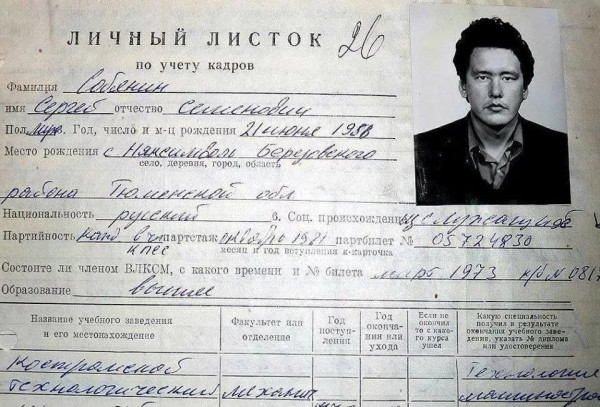 ЛИЧНЫЙ ЛИСТОК 26
по учету кадров
Фамилия Собянин
имя Сергей отчество Семенович
Пол муж. Год, число и м-ц рождения 21 июня 1958
Место рождения с Няксимволь Березовского
село, деревня, город, область
района Тюменской обл
Национальность русский 6. Соц. происхождение из служащих
Партийность канд в чл партстаж октябрь 1981 партбилет № 05724830
кпсс месяц и год вступления к-карточка
Состоите ли членом ВЛКСМ, с какого времени и № билета март 1973 к/б № 0817
Образование высшее
Название учебного заведения и его местонахождение
Факультет или отделение
Год поступления
Год окончания или ухода
Если не окончил то с какого курса ушел
Какую специальность получил в результате окончания учебного заведения, указать № диплома или удостоверения
Костромской Технология
технологический механич машиностро